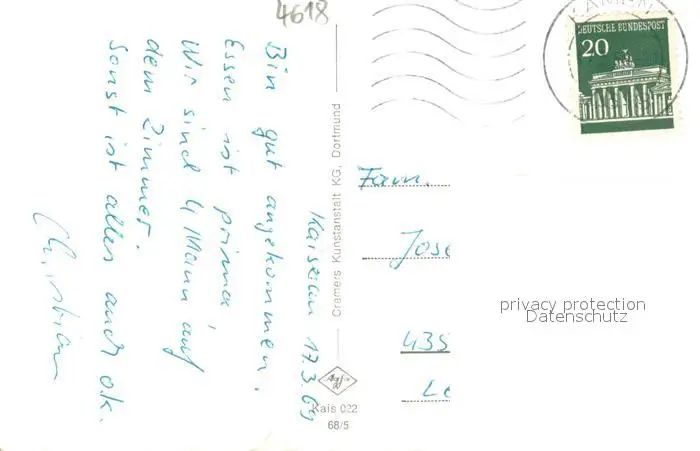 4618
Kaiserau 17.3.69
Bin gut angekommen.
Essen ist prima,
Wir sind 4 Mann auf
dem Zimmer.
Sonst ist alles auch o.k.
Christian
Cramers Kunstanstalt KG, Dortmund
Kais 022
68/5
DEUTSCHE BUNDESPOST
20
Fam.
Jose
435
privacy protection
Datenschutz